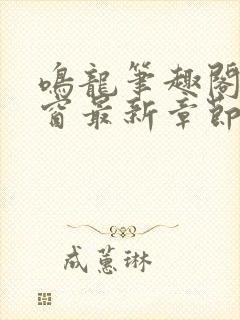 鳴龍筆趣閣
窗最新章節
成蕙琳